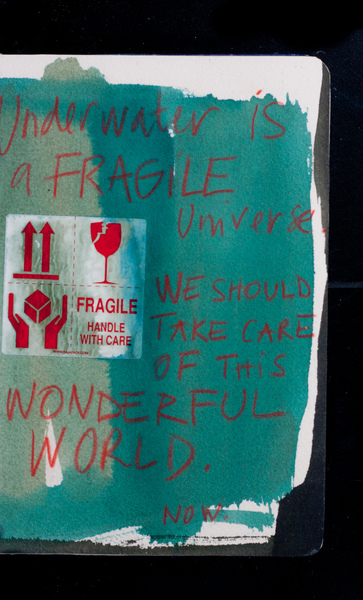 Underwater is
a FRAGILE
Universe.
WE SHOULD
TAKE CARE
OF THIS
FRAGILE
HANDLE
WITH CARE
WONDERFUL
WORLD.
NOW.